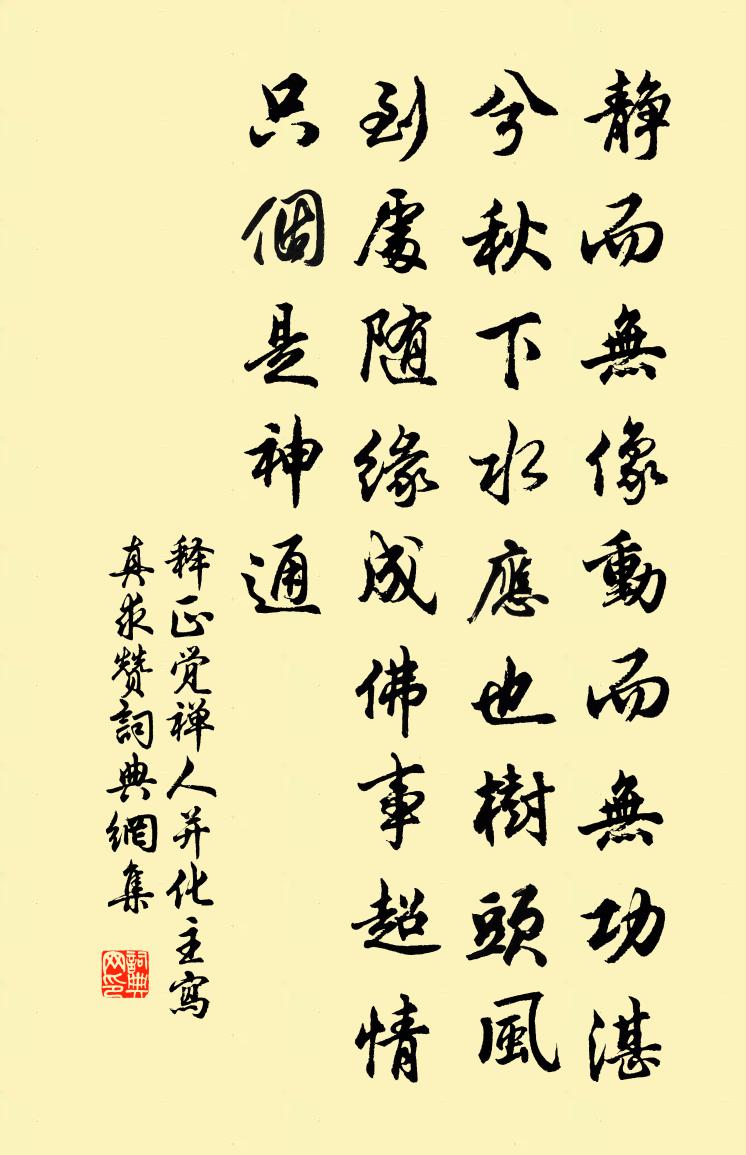 静而無像動而無功湛
兮秋下水應也樹頭風
到處随緣成佛事超情
只個是神通
释正觉禅人并化主寫
真求赞詞典網集
詞典网印